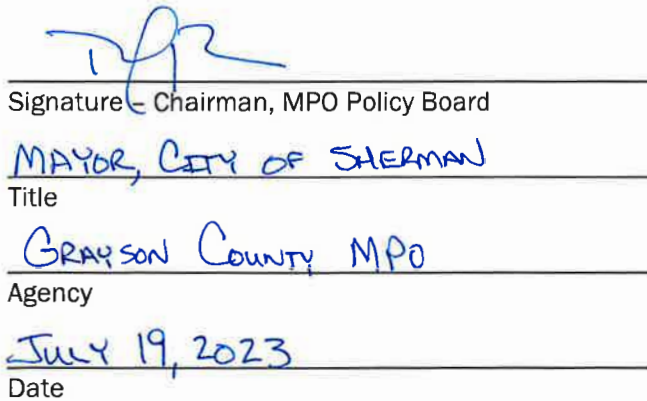 Signature – Chairman, MPO Policy Board
MAYOR, CITY OF SHERMAN
Title
GRAYSON COUNTY MPO
Agency
JULY 19, 2023
Date